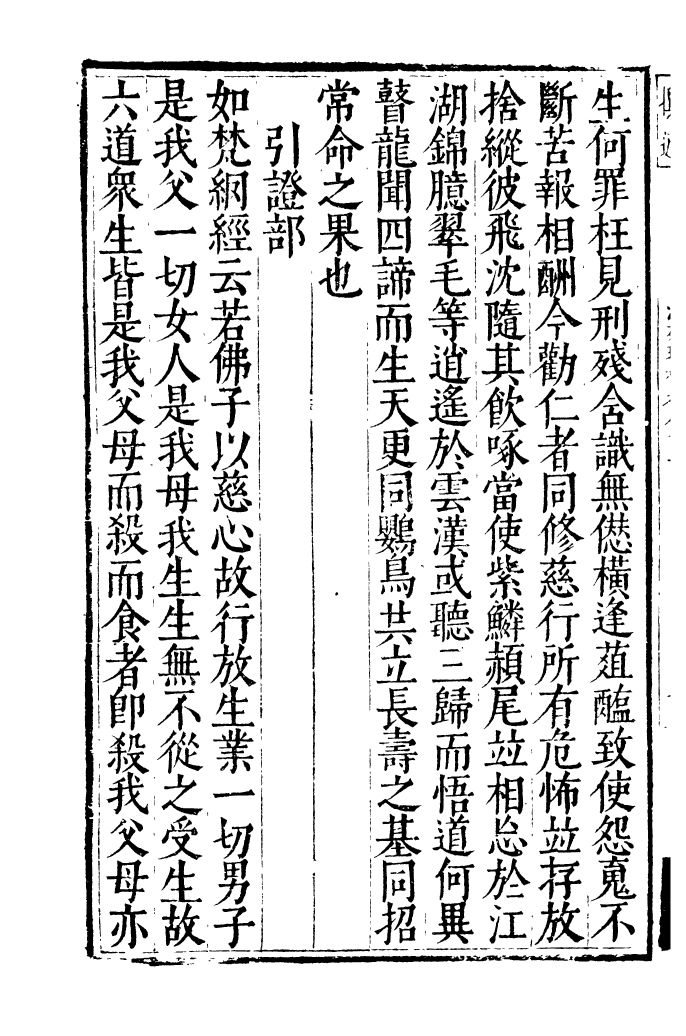 生何罪枉見刑殘含識無愆橫逢葅醢致使怨䰟不
斷苦報相酬今勸仁者同修慈行所有危怖並存放
捨縱彼飛沈隨其飮啄當使紫鱗頳尾並相忘於江
湖錦臆翠毛等逍遙於雲漢或聽三歸而悟道何異
瞽龍聞四諦而生天更同鸚鳥共立長壽之基同招
常命之果也
引證部
如梵網經云若佛子以慈心故行放生業一切男子
是我父一切女人是我母我生生無不從之受生故
六道衆生皆是我父母而殺而食者卽殺我父母亦